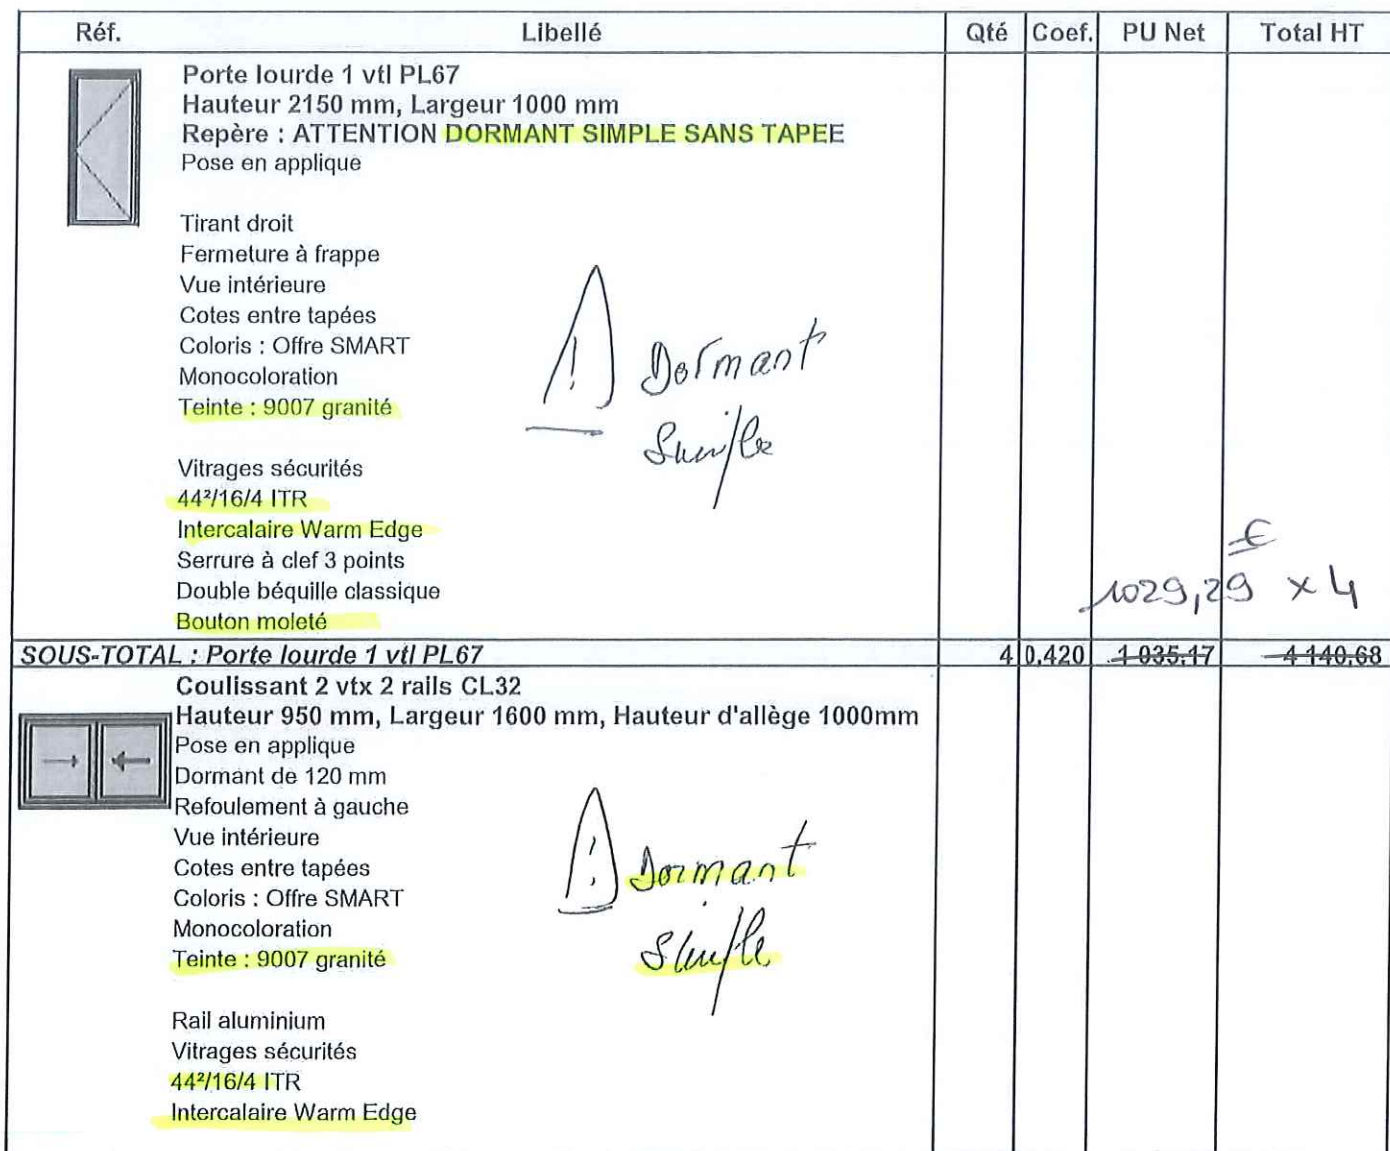 Réf. Libellé Qté Coef. PU Net Total HT
Porte lourde 1 vtl PL67
Hauteur 2150 mm, Largeur 1000 mm
Repère : ATTENTION DORMANT SIMPLE SANS TAPEE
Pose en applique
Tirant droit
Fermeture à frappe
Vue intérieure
Cotes entre tapées
Coloris : Offre SMART
Monocoloration
Teinte : 9007 granité
! Dormant
Simple
Vitrages sécurités
44²/16/4 ITR
Intercalaire Warm Edge
Serrure à clef 3 points
Double béquille classique
Bouton moleté
€
1029,29 x 4
SOUS-TOTAL : Porte lourde 1 vtl PL67 4 0,420 1 035,17 4 140,68
Coulissant 2 vtx 2 rails CL32
Hauteur 950 mm, Largeur 1600 mm, Hauteur d'allège 1000mm
Pose en applique
Dormant de 120 mm
Refoulement à gauche
Vue intérieure
Cotes entre tapées
Coloris : Offre SMART
Monocoloration
Teinte : 9007 granité
! Dormant
Simple
Rail aluminium
Vitrages sécurités
44²/16/4 ITR
Intercalaire Warm Edge